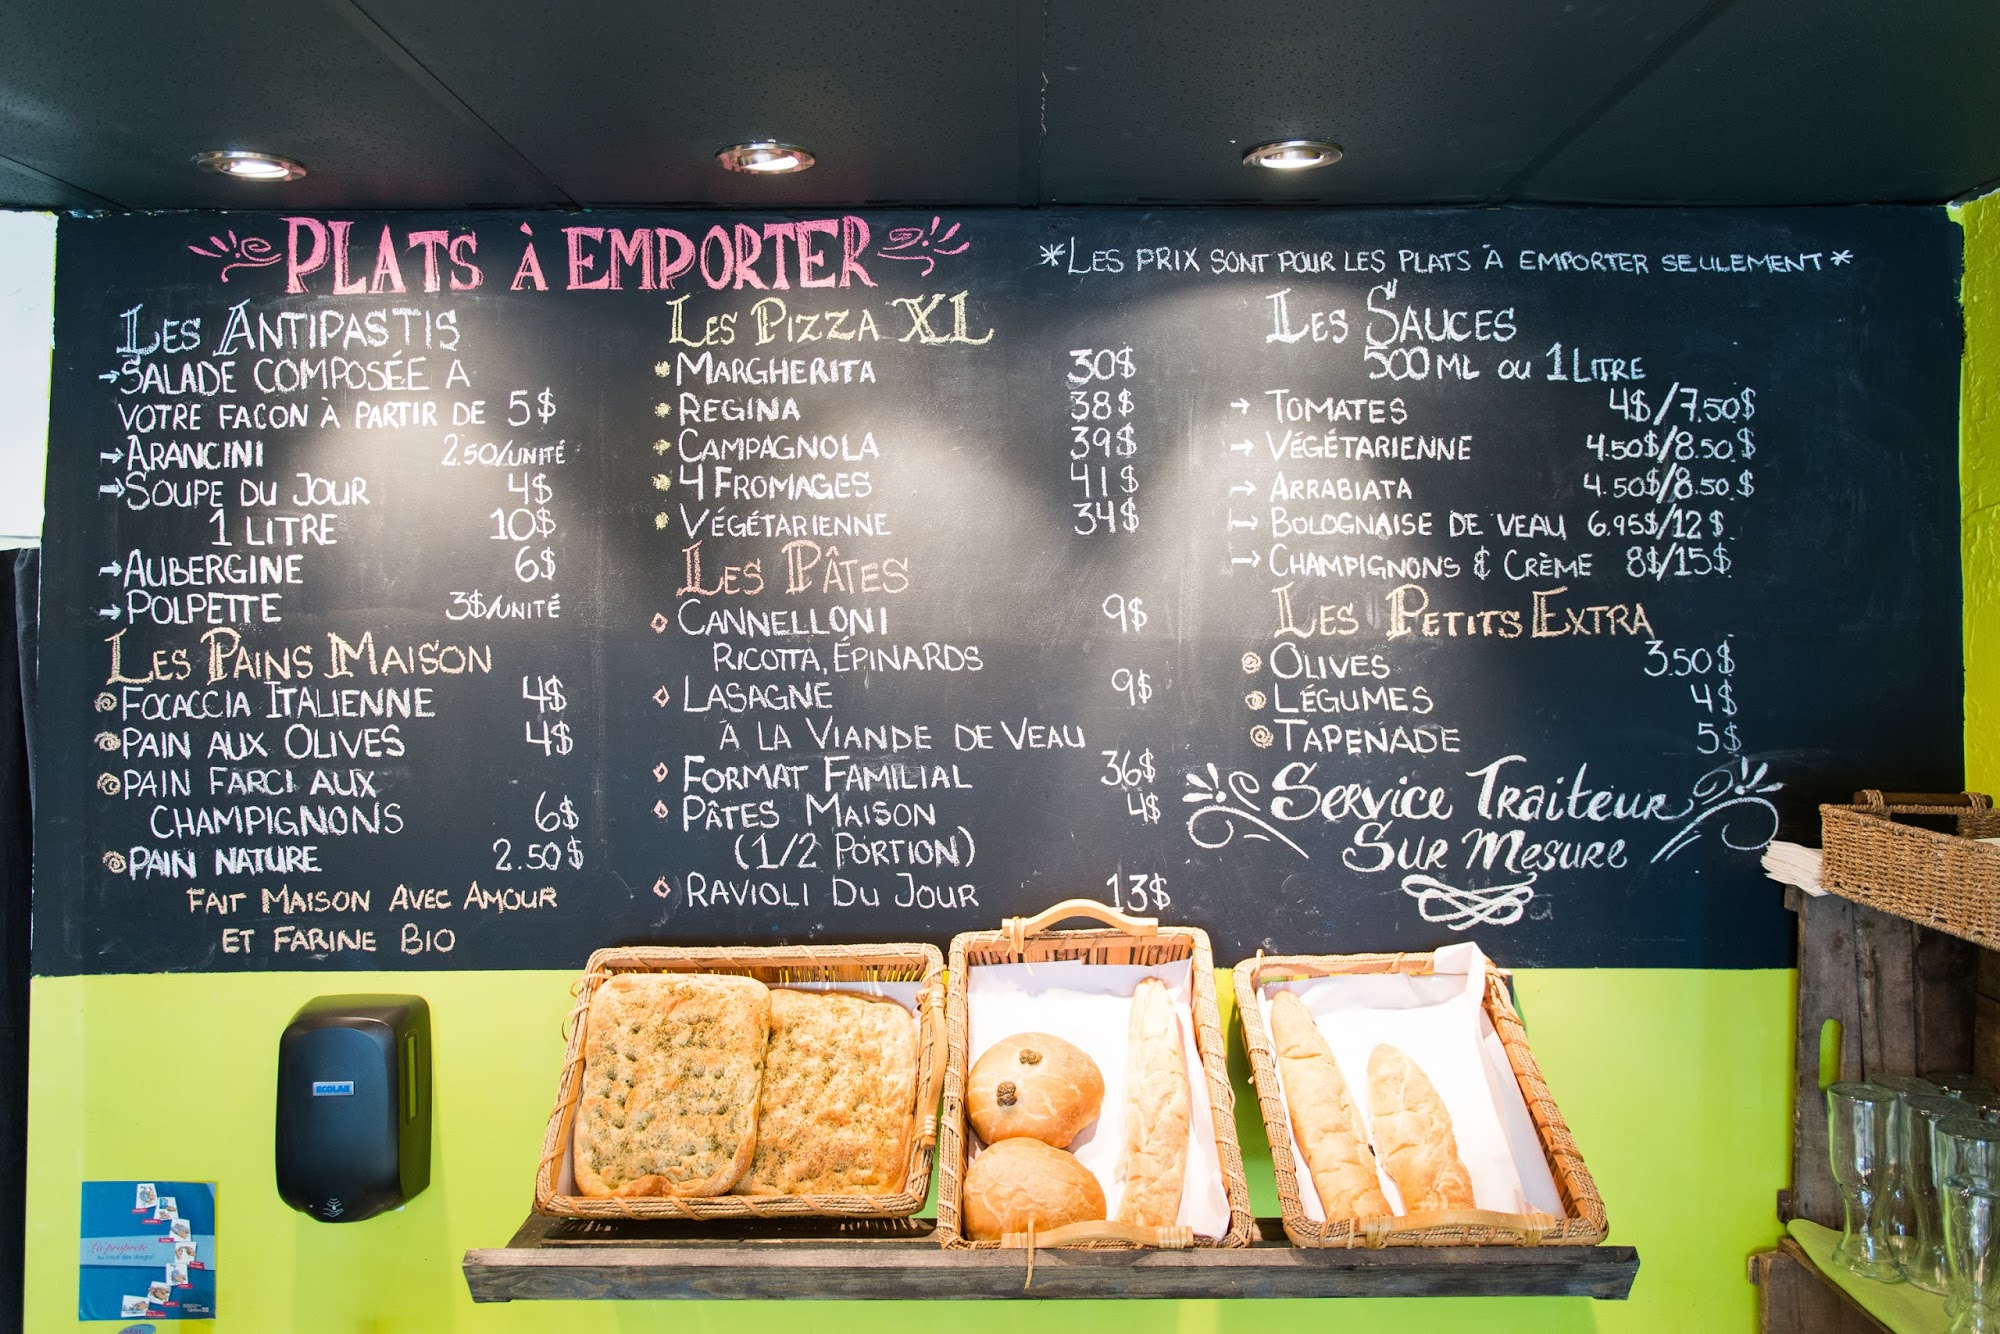 PLATS À EMPORTER
*LES PRIX SONT POUR LES PLATS À EMPORTER SEULEMENT*
LES ANTIPASTIS
→SALADE COMPOSÉE A
VOTRE FACON À PARTIR DE 5$
→ARANCINI 2.50/UNITÉ
→SOUPE DU JOUR 4$
1 LITRE 10$
→AUBERGINE 6$
→POLPETTE 3$/UNITÉ
LES PAINS MAISON
FOCACCIA ITALIENNE 4$
PAIN AUX OLIVES 4$
PAIN FARCI AUX
CHAMPIGNONS 6$
PAIN NATURE 2.50$
FAIT MAISON AVEC AMOUR
ET FARINE BIO
LES PIZZA XL
MARGHERITA 30$
REGINA 38$
CAMPAGNOLA 39$
4 FROMAGES 41$
VÉGÉTARIENNE 34$
LES PÂTES
CANNELLONI 9$
RICOTTA, ÉPINARDS
LASAGNE 9$
À LA VIANDE DE VEAU
FORMAT FAMILIAL 36$
PÂTES MAISON 4$
(1/2 PORTION)
RAVIOLI DU JOUR 13$
LES SAUCES
500 ML OU 1 LITRE
→ TOMATES 4$/7.50$
→ VÉGÉTARIENNE 4.50$/8.50$
→ ARRABIATA 4.50$/8.50$
→ BOLOGNAISE DE VEAU 6.95$/12$
→ CHAMPIGNONS & CRÈME 8$/15$
LES PETITS EXTRA
OLIVES 3.50$
LÉGUMES 4$
TAPENADE 5$
Service Traiteur
Sur Mesure
ECOLAB
La propreté
au bout des doigts!